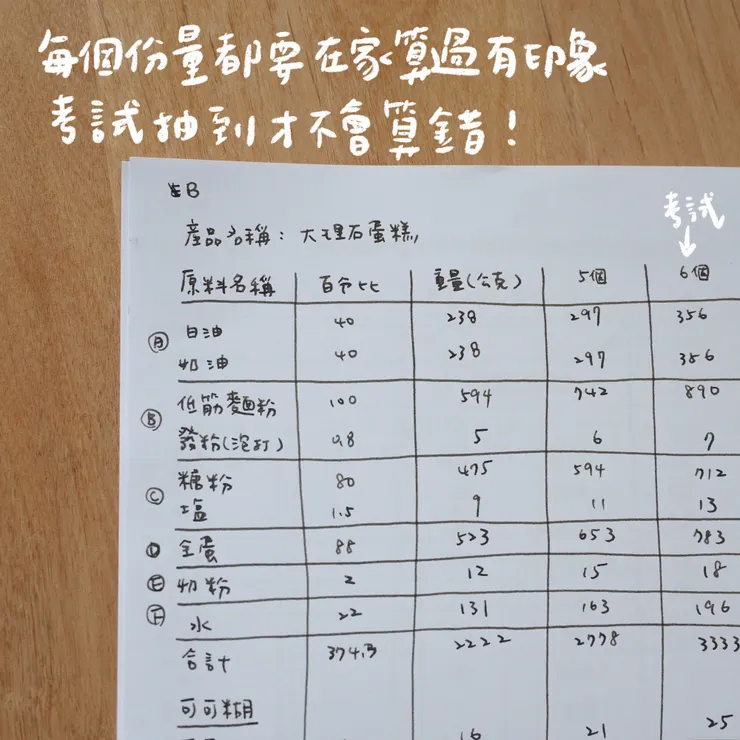 每個份量都要在家算過有印象
考試抽到才不會算錯！
B
考試
產品名稱：大理石蛋糕
原料名稱 百分比 重量(公克) 5個 6個
A 白油 40 238 297 356
奶油 40 238 297 356
B 低筋麵粉 100 594 742 890
發粉(泡打) 0.8 5 6 7
C 糖粉 80 475 594 712
塩 1.5 9 11 13
D 全蛋 88 523 653 783
E 奶粉 2 12 15 18
F 水 22 131 163 196
合計 374.3 2222 2778 3333
可可糊
16 21 25